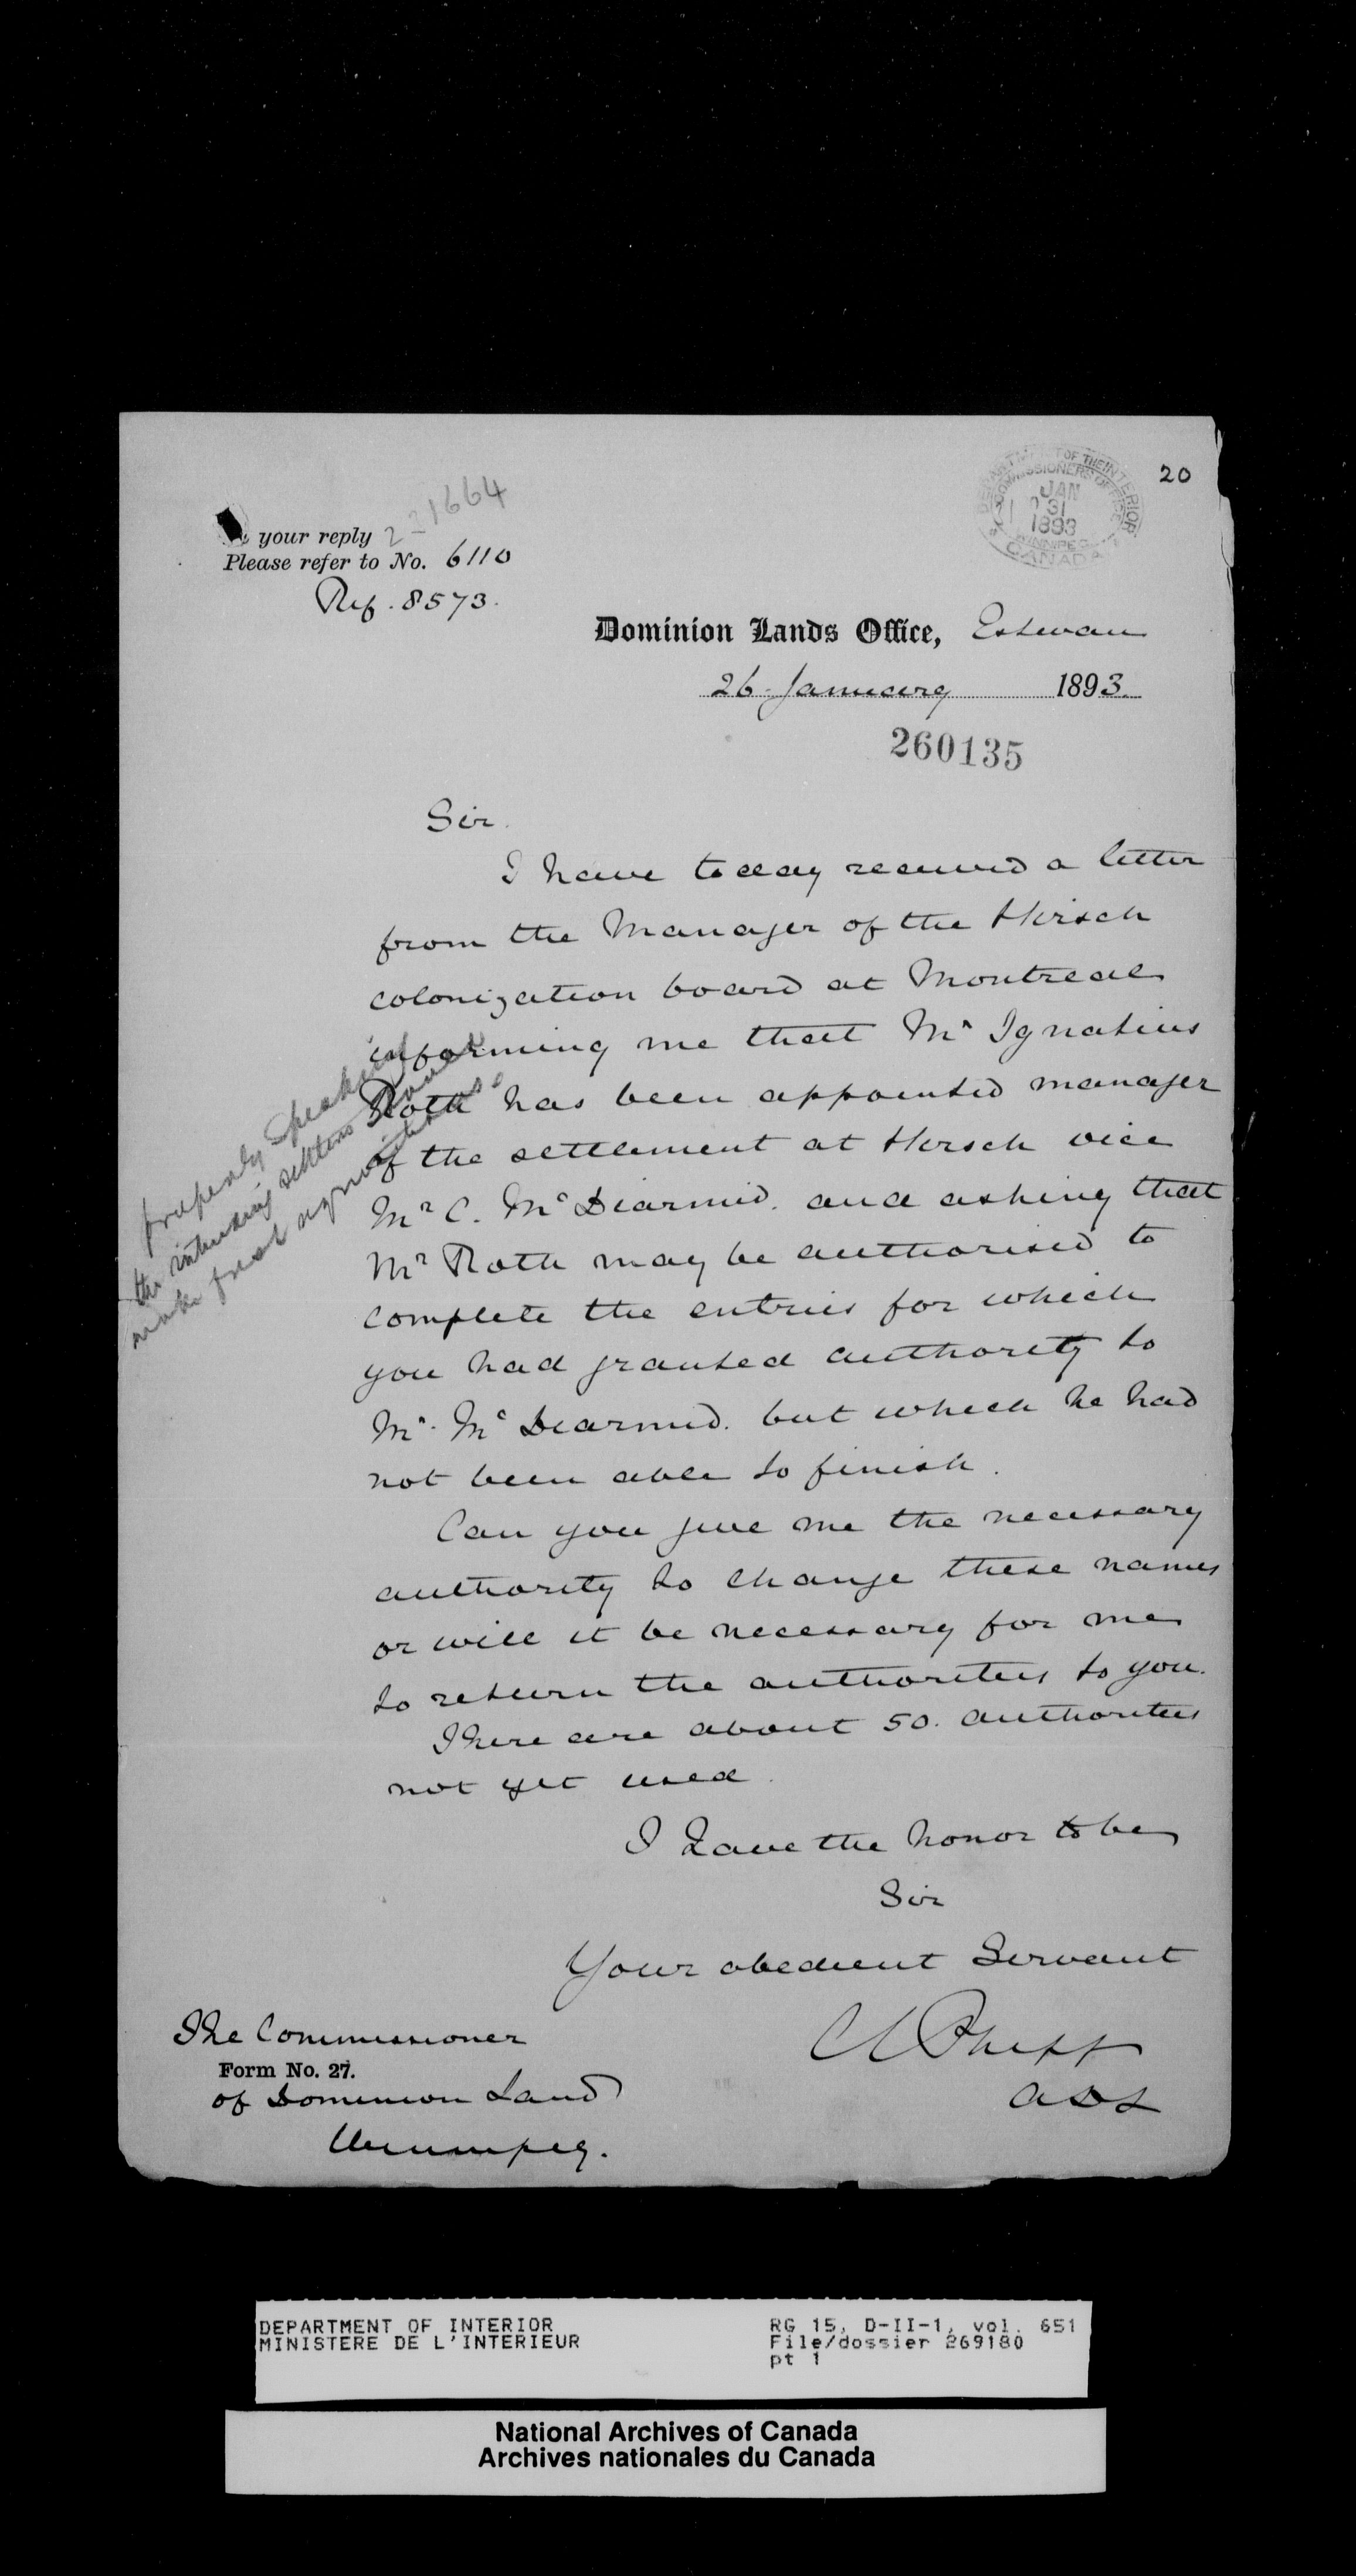 20
DEPARTMENT OF THE INTERIOR
COMMISSIONERS OFFICE
JAN
31
1893
WINNIPEG
CANADA
221664
your reply
Please refer to No. 6110
Ref. 8573.
Dominion Lands Office, Estevan
26 January 1893.
260135
Sir
I have today received a letter
from the Manager of the Hirsch
colonization board at Montreal
informing me that Mr Ignatius
Roth has been appointed manager
of the settlement at Hirsch vice
Mr C. McDiarmid. and asking that
Mr Roth may be authorised to
complete the entries for which
you had granted authority to
Mr. McDiarmid. but which he had
not been able to finish.
Can you give me the necessary
authority to change these names
or will it be necessary for me
to return the authorities to you.
There are about 50. authorities
not yet used.
properly speaking
the intending settlers
make fresh
I have the honor to be
Sir
Your obedient Servant
ADL
The Commissioner
Form No. 27.
of Dominion Land
Winnipeg.
DEPARTMENT OF INTERIOR
MINISTERE DE L'INTERIEUR
RG 15, D-II-1, vol. 651
File/dossier 269180
pt 1
National Archives of Canada
Archives nationales du Canada